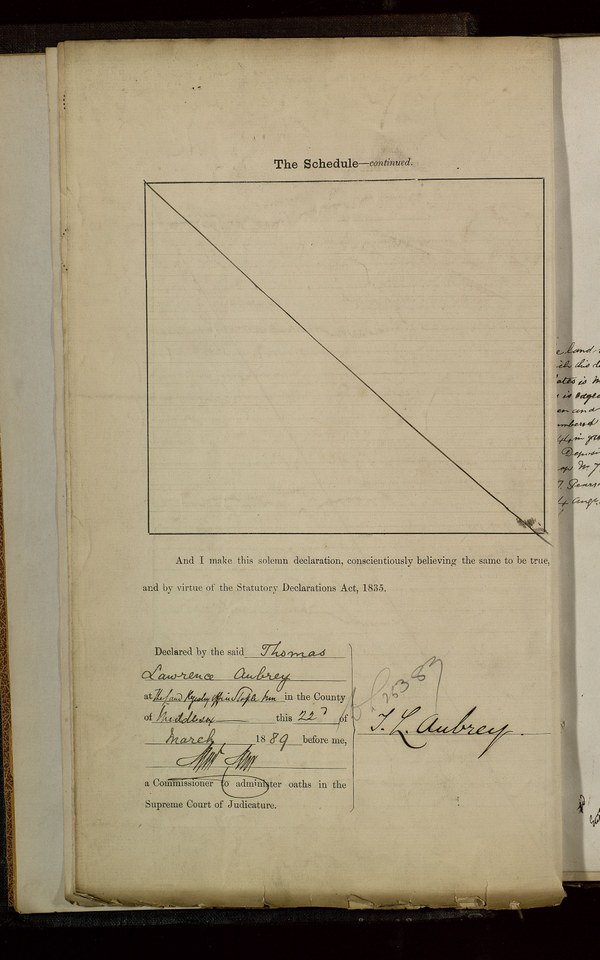 The Schedule—continued.
And I make this solemn declaration, conscientiously believing the same to be true,
and by virtue of the Statutory Declarations Act, 1835.
Declared by the said Thomas
Lawrence Aubrey
at the Land Registry office in Staple Inn in the County
of Middlesex this 22d of
March 1889 before me,
a Commissioner to administer oaths in the
Supreme Court of Judicature.
T. L. Aubrey.